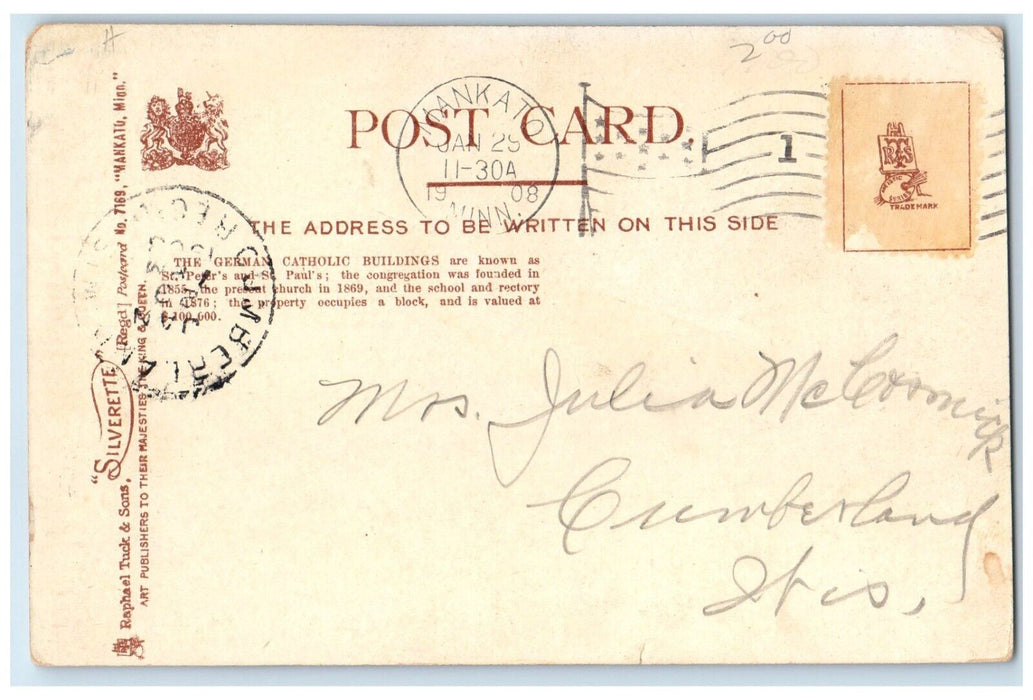 2 00
POST CARD.
MANKATO
JAN 29
11-30A
1908
MINN.
1
TRADE MARK
THE ADDRESS TO BE WRITTEN ON THIS SIDE
THE GERMAN CATHOLIC BUILDINGS are known as
St. Peter's and St. Paul's; the congregation was founded in
1855, the present church in 1869, and the school and rectory
in 1876; the property occupies a block, and is valued at
$100,000.
Mrs. Julia McCormick
Cumberland
Wis,
Raphael Tuck & Sons, "SILVERETTE" [Regd] Postcard No. 7169, "MANKATO, Minn."
ART PUBLISHERS TO THEIR MAJESTIES THE KING & QUEEN.